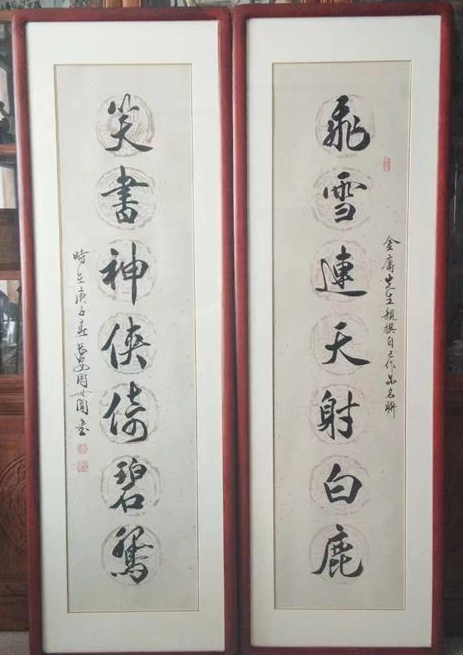 飛雪連天射白鹿
金庸先生親撰自己作品名聯
笑書神俠倚碧鴛
時在庚子春長安周世閣書